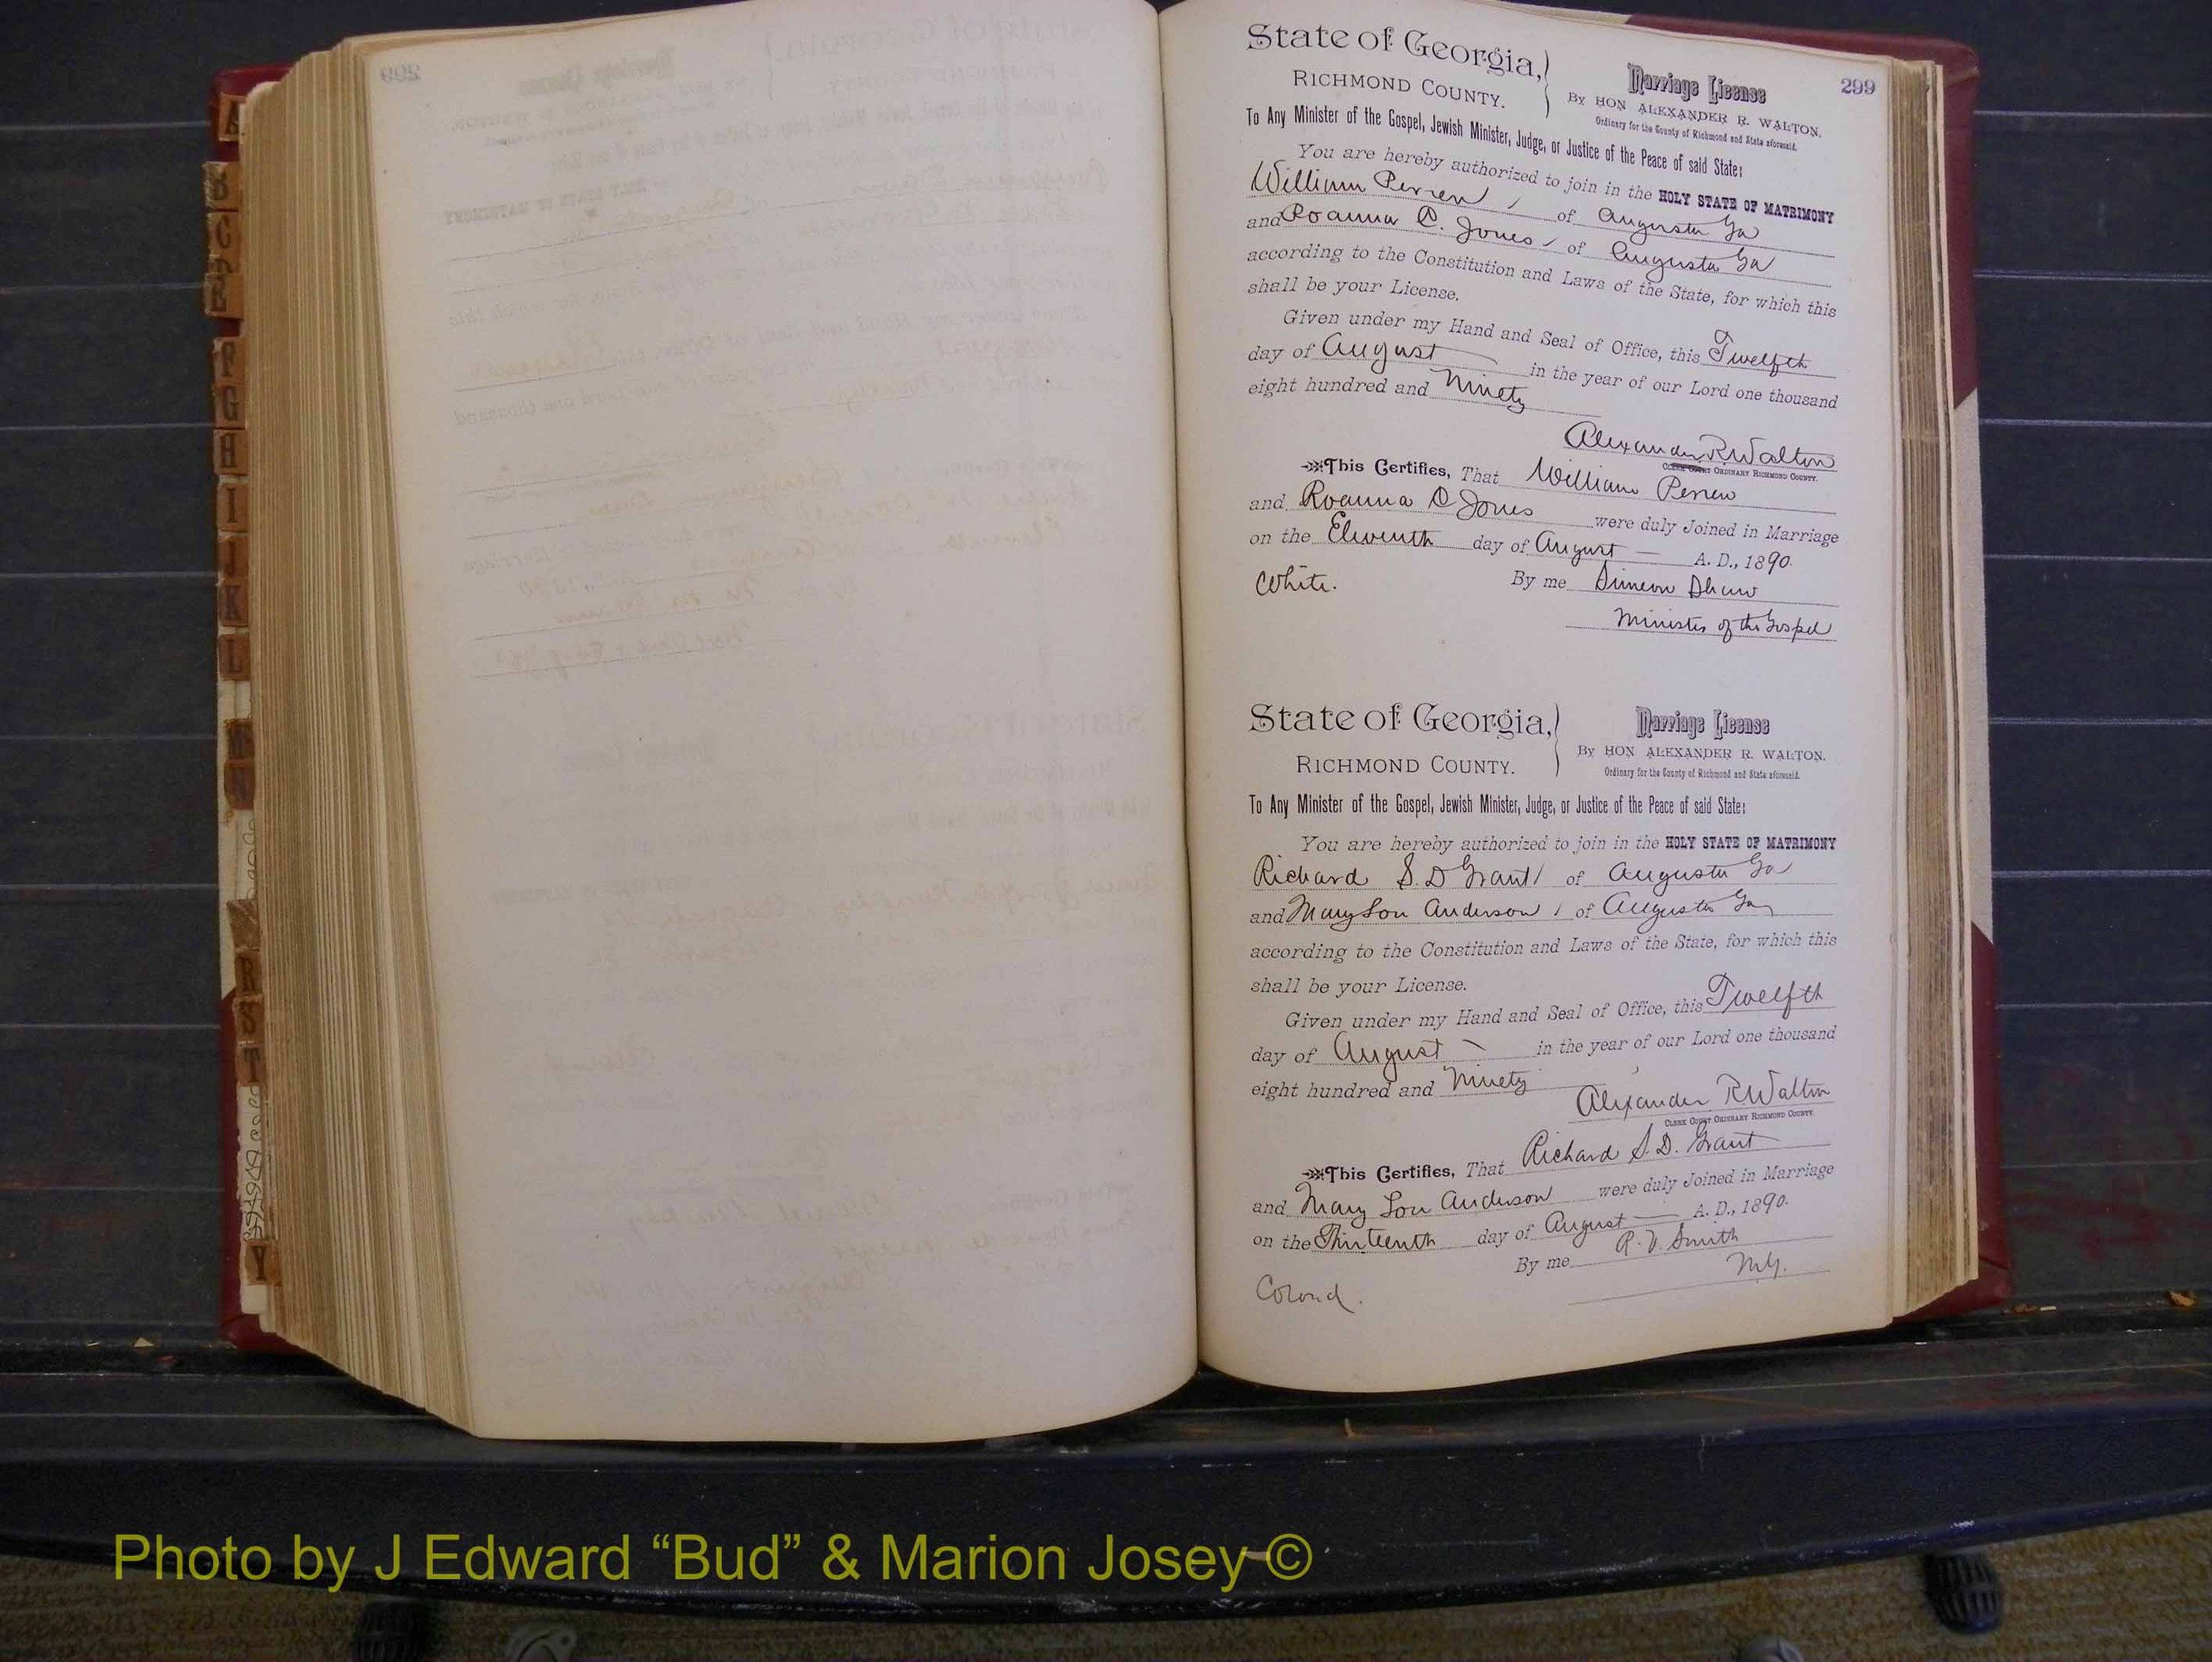 299
State of Georgia,
RICHMOND COUNTY.
Marriage License
By HON ALEXANDER R. WALTON,
Ordinary for the County of Richmond and State aforesaid.
To Any Minister of the Gospel, Jewish Minister, Judge, or Justice of the Peace of said State:
You are hereby authorized to join in the HOLY STATE OF MATRIMONY
William of Augusta Ga
and Roanna C. Jones of Augusta Ga
according to the Constitution and Laws of the State, for which this
shall be your License.
Given under my Hand and Seal of Office, this Twelfth
day of August in the year of our Lord one thousand
eight hundred and Ninety
Alexander R Walton
CLERK COURT ORDINARY RICHMOND COUNTY.
This Certifies, That William
and Roanna C Jones were duly Joined in Marriage
on the Eleventh day of August A. D., 1890.
White. By me Simeon Shaw
Minister of the Gospel
State of Georgia,
RICHMOND COUNTY.
Marriage License
By HON ALEXANDER R. WALTON,
Ordinary for the County of Richmond and State aforesaid.
To Any Minister of the Gospel, Jewish Minister, Judge, or Justice of the Peace of said State:
You are hereby authorized to join in the HOLY STATE OF MATRIMONY
Richard S. D Grant of Augusta Ga
and Mary Lou Anderson of Augusta Ga
according to the Constitution and Laws of the State, for which this
shall be your License.
Given under my Hand and Seal of Office, this Twelfth
day of August in the year of our Lord one thousand
eight hundred and Ninety
Alexander R Walton
CLERK COURT ORDINARY RICHMOND COUNTY.
This Certifies, That Richard S. D. Grant
and Mary Lou Anderson were duly Joined in Marriage
on the Thirteenth day of August A. D., 1890.
By me Smith
M.G.
Colored.
A
B
C
F
G
H
I
J
K
L
N
R
S
T
Y
Photo by J Edward “Bud” & Marion Josey ©